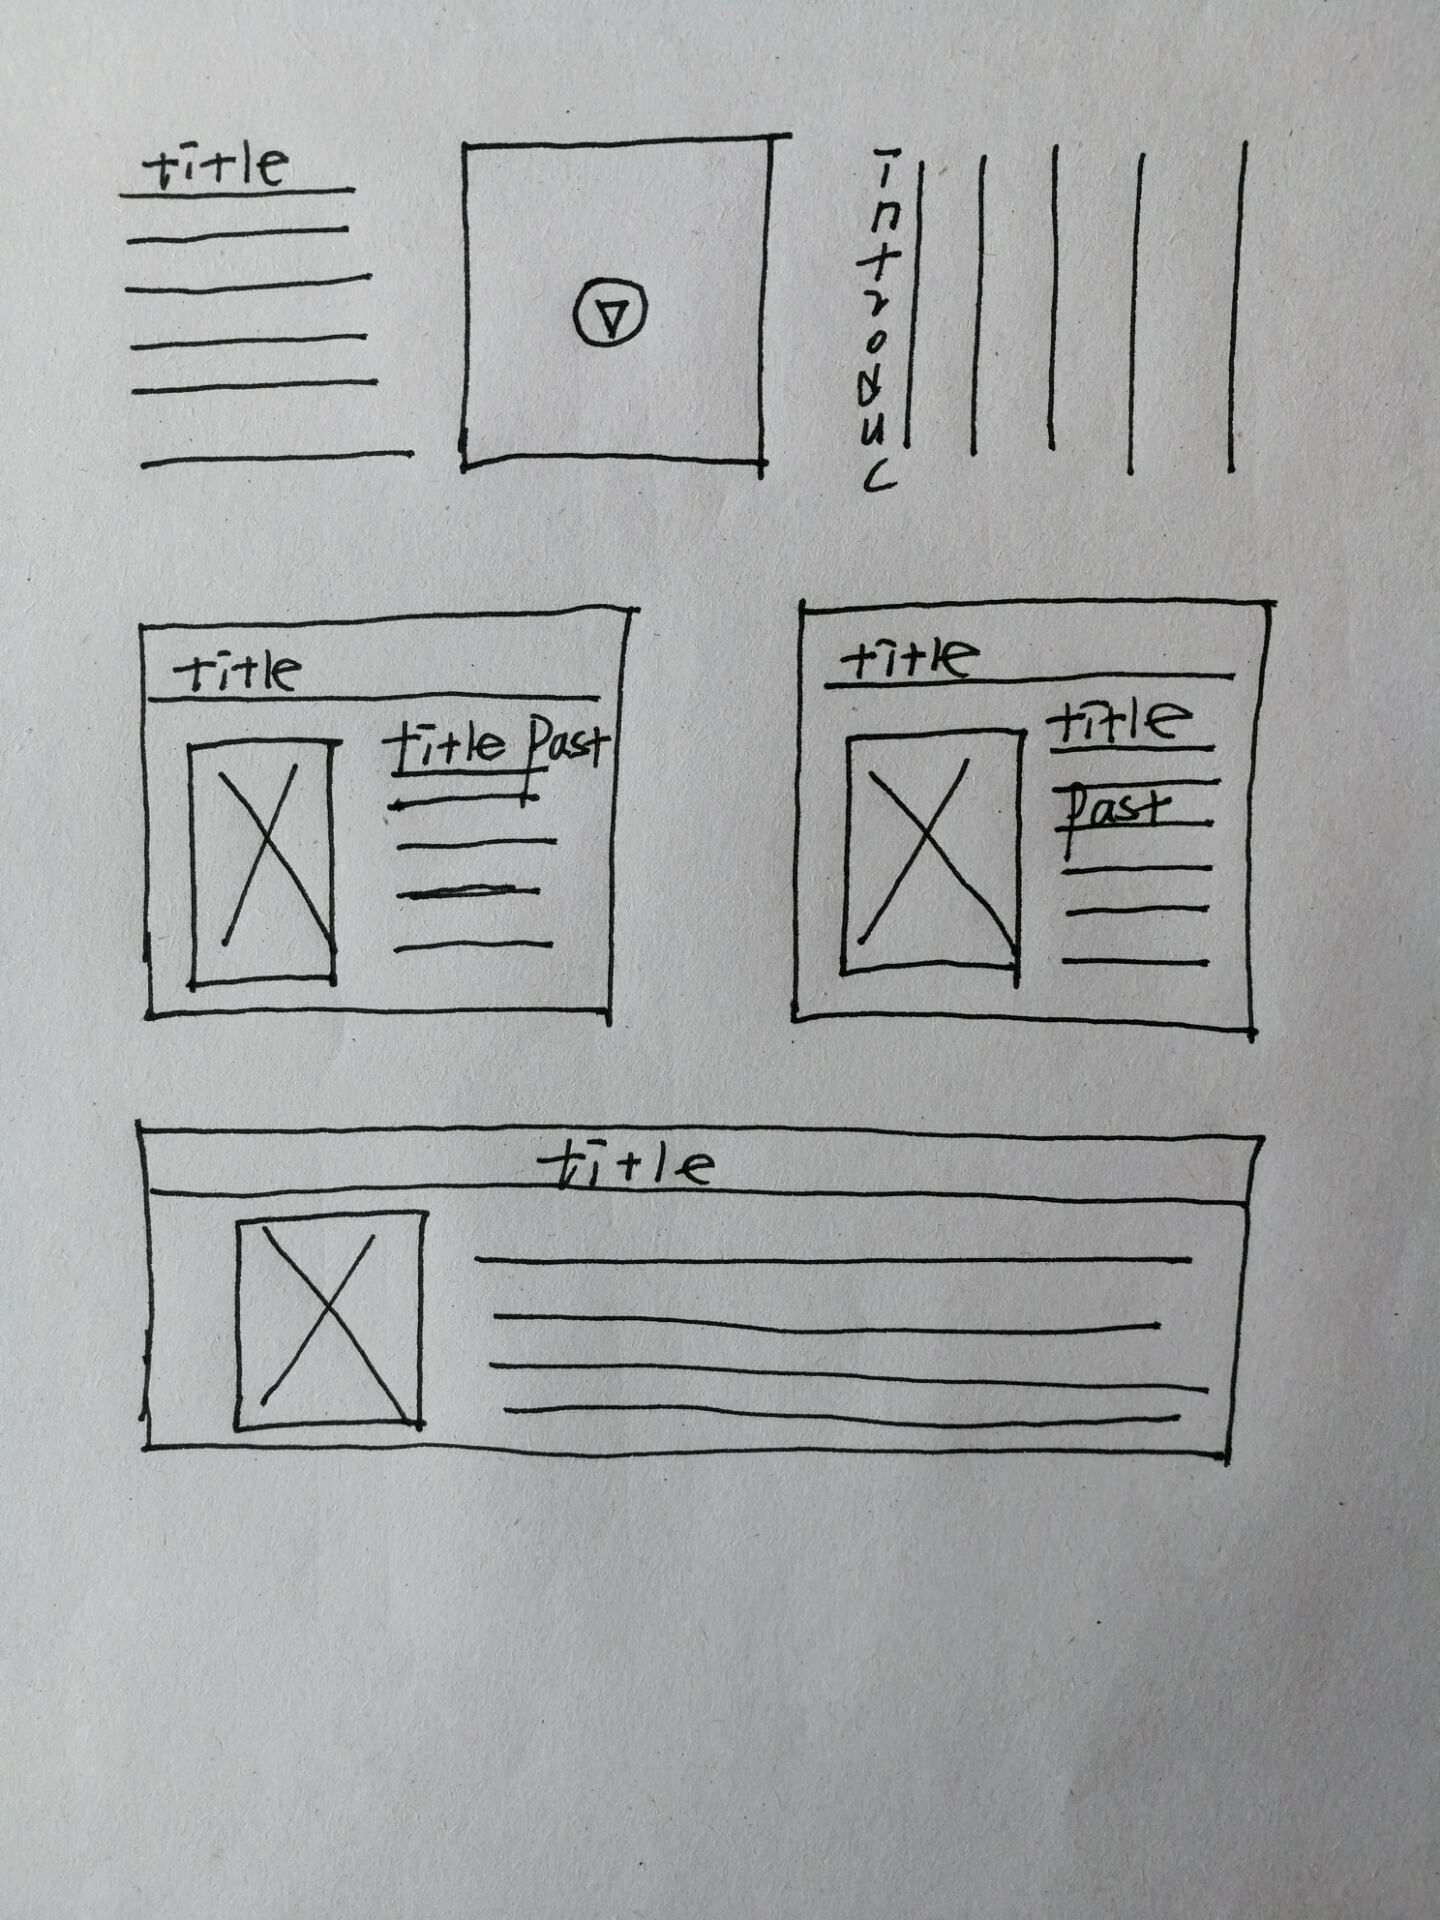 title
introduc
title
title Past
title
title
Past
title